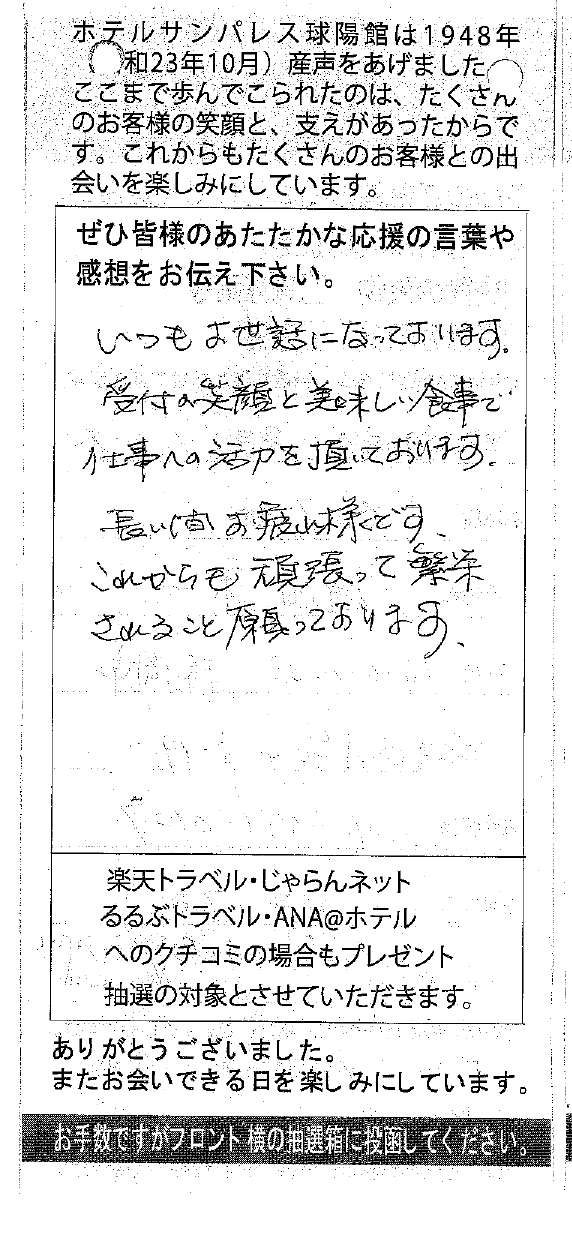 ホテルサンパレス球陽館は1948年
和23年10月）産声をあげました
ここまで歩んでこられたのは、たくさん
のお客様の笑顔と、支えがあったからで
す。これからもたくさんのお客様との出
会いを楽しみにしています。
ぜひ皆様のあたたかな応援の言葉や
感想をお伝え下さい。
いつもお世話になっております。
受付の笑顔と美味しい食事で
仕事への活力を頂いております。
長い間お疲れ様です、
これからも頑張って繁栄
されること願っております、
楽天トラベル・じゃらんネット
るるぶトラベル・ANA@ホテル
へのクチコミの場合もプレゼント
抽選の対象とさせていただきます。
ありがとうございました。
またお会いできる日を楽しみにしています。
お手数ですがフロント横の抽選箱に投函してください。